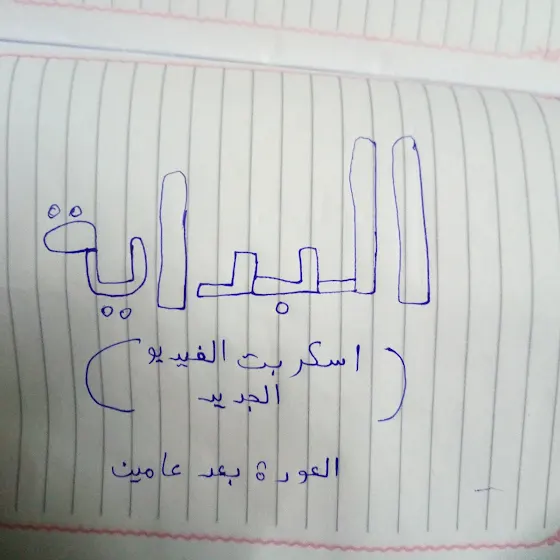 البداية
(اسكربت الفيديو
الجديد)
العودة بعد عامين